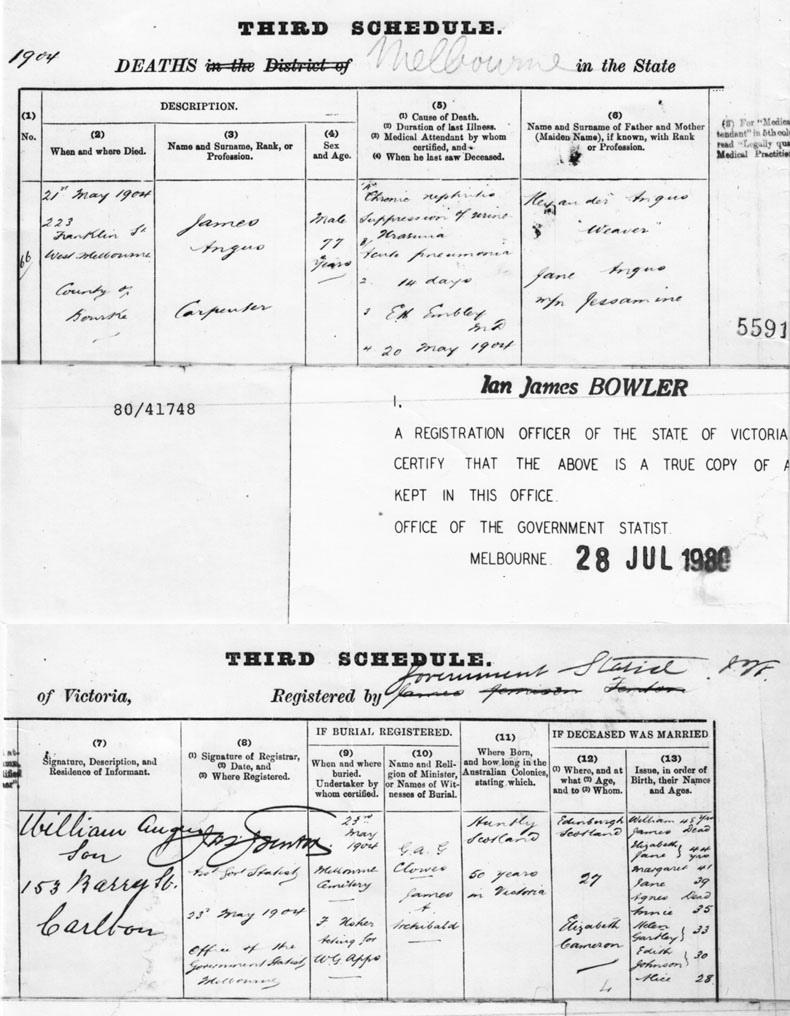 THIRD SCHEDULE.
1904 DEATHS in the District of Melbourne in the State
DESCRIPTION.
(1)
No.
(2)
When and where Died.
(3)
Name and Surname, Rank, or
Profession.
(4)
Sex
and Age.
(5)
(1) Cause of Death.
(2) Duration of last Illness.
(3) Medical Attendant by whom
certified, and
(4) When he last saw Deceased.
(6)
Name and Surname of Father and Mother
(Maiden Name), if known, with Rank
or Profession.
(5) For "Medical
tendant" in 5th col
read "Legally qua
Medical Practitio
66
21st May 1904
223
Franklin St
West Melbourne
County of
Bourke
James
Angus
Carpenter
Male
77
Years
Chronic nephritis
Suppression of urine
Uraemia
Acute pneumonia
2 14 days
3 EH Embley
MD
4 20 May 1904
Alexander Angus
"Weaver"
Jane Angus
m/n Jessamine
5591
80/41748
Ian James BOWLER
I,
A REGISTRATION OFFICER OF THE STATE OF VICTORIA
CERTIFY THAT THE ABOVE IS A TRUE COPY OF A
KEPT IN THIS OFFICE.
OFFICE OF THE GOVERNMENT STATIST.
MELBOURNE. 28 JUL 1980
THIRD SCHEDULE.
of Victoria, Registered by James Jamieson Fenton Government Statist
(7)
Signature, Description, and
Residence of Informant.
(8)
(1) Signature of Registrar,
(2) Date, and
(3) Where Registered.
IF BURIAL REGISTERED.
(9)
When and where
buried.
Undertaker by
whom certified.
(10)
Name and Reli-
gion of Minister,
or Names of Wit-
nesses of Burial.
(11)
Where Born,
and how long in the
Australian Colonies,
stating which.
IF DECEASED WAS MARRIED
(12)
(1) Where, and at
what (2) Age,
and to (3) Whom.
(13)
Issue, in order of
Birth, their Names
and Ages.
William Angus
Son
153 Barry St.
Carlton
Jas Fenton
Govt Statist
23d May 1904
Office of the
Government Statist
Melbourne
23rd
May
1904
Melbourne
Cemetery
F Usher
Acting for
W G Apps
G. A. G
Clowes
James
Archibald
Huntly
Scotland
50 years
in Victoria
Edinburgh
Scotland
27
Elizabeth
Cameron
William 45 Yrs
James Dead
Elizabeth
Jane } 44 yrs
Margaret 41
Jane 39
Agnes Dead
Annie 35
Helen
Gartley } 33
Edith
Johnson } 30
Alice 28